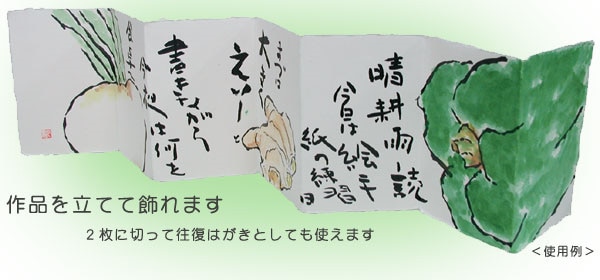 晴耕雨読
今日は絵手
紙の練習
日
まずは
大きく
えいーと
書きながら
今超人は何を
作品を立てて飾れます
2枚に切って往復はがきとしても使えます
<使用例>